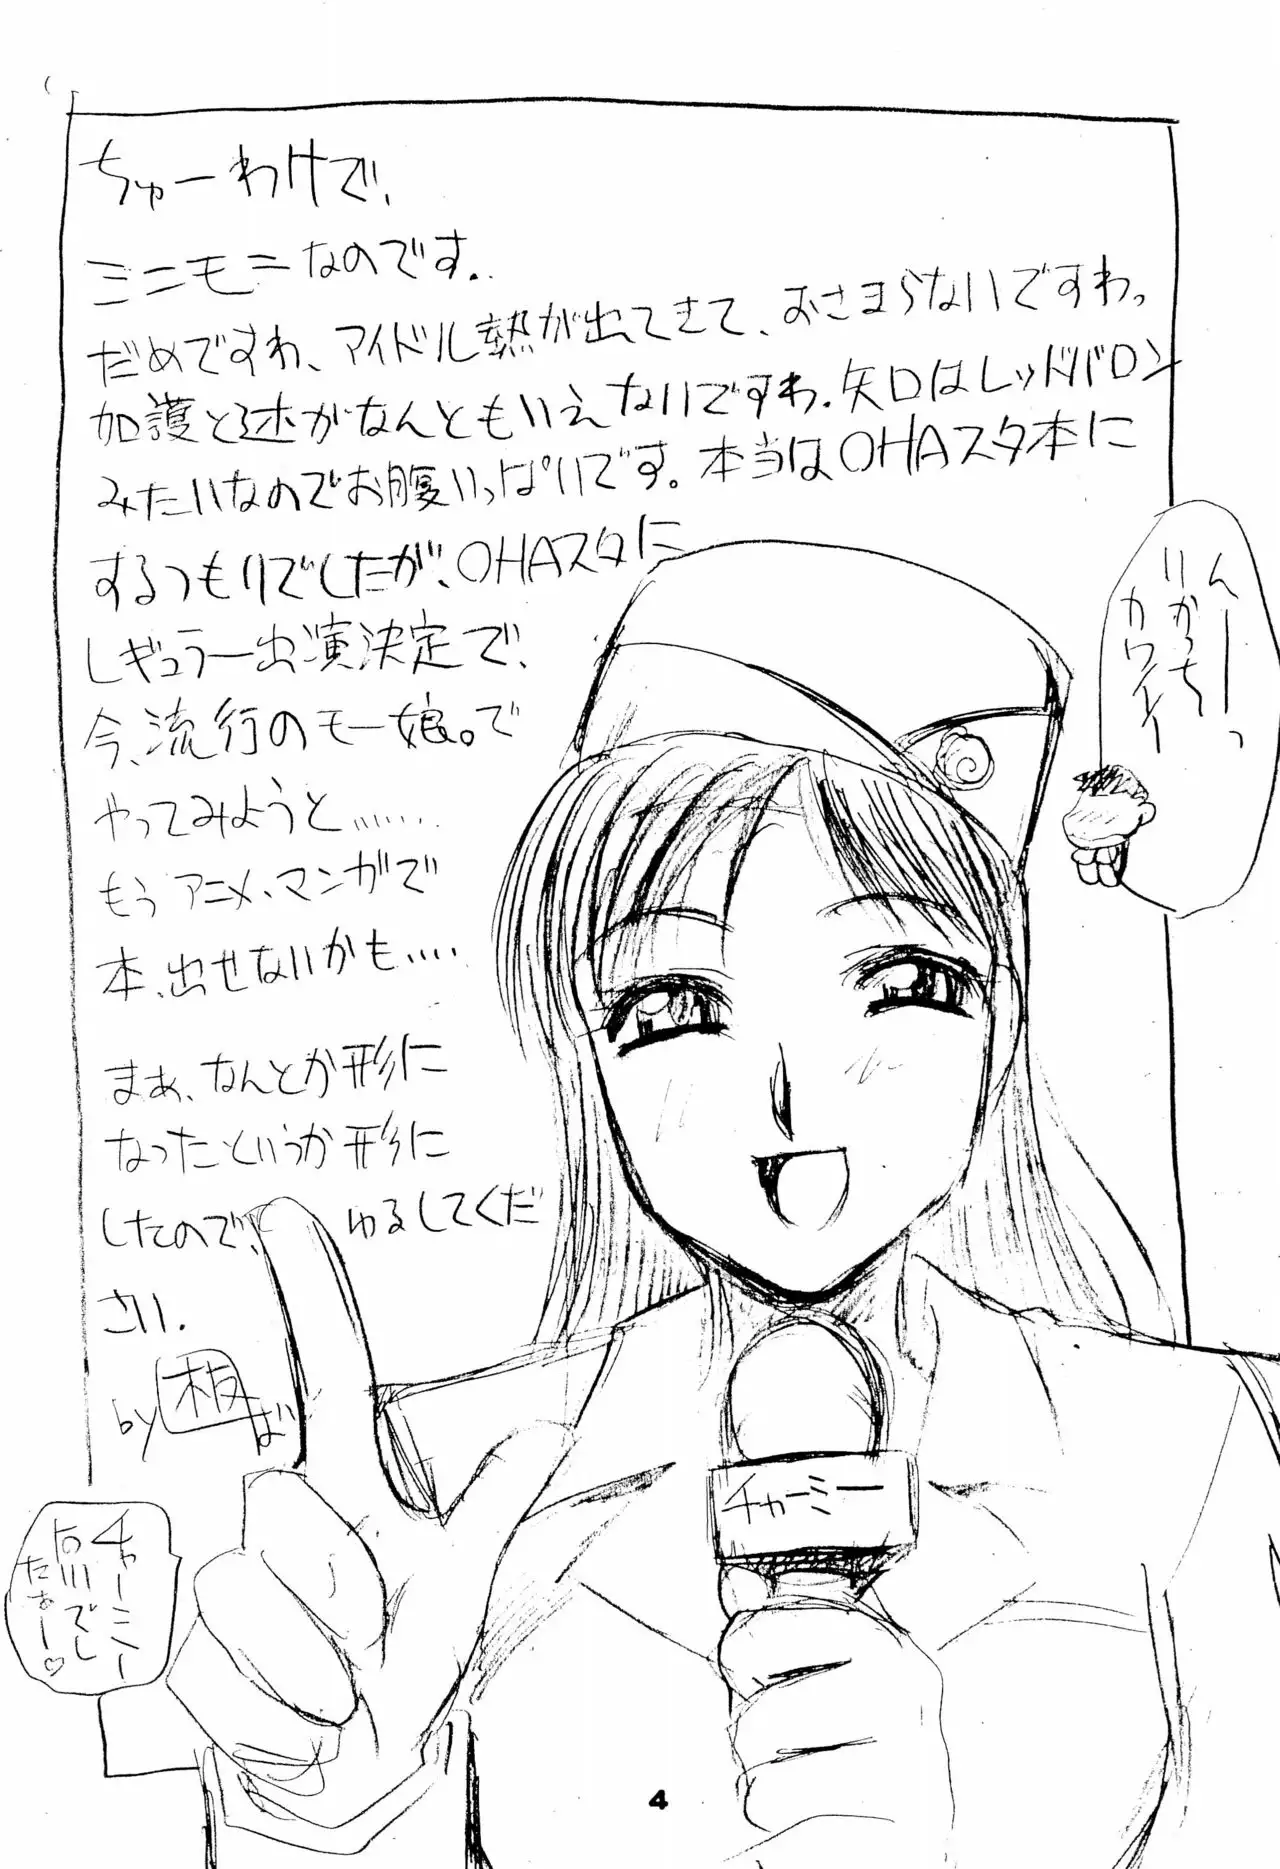 ちゅーわけで、
ミニモニなのです。
だめですわ、アイドル熱が出てきて、おさまらないですわっ
加護と辻がなんともいえないですわ。矢口はレッドバロン
みたいなのでお腹いっぱいです。本当はOHAスタ本に
するつもりでしたが、OHAスタに
レギュラー出演決定で、
今、流行のモー娘。で
やってみようと……
もうアニメ、マンガで
本、出せないかも……
まあ、なんとか形に
なったというか形に
したので、ゆるしてくだ
さい。
by 板ば
んーーっ
りかっち
カワイイ
チャーミー
チャーミー
石川でし
たぁー♡
4